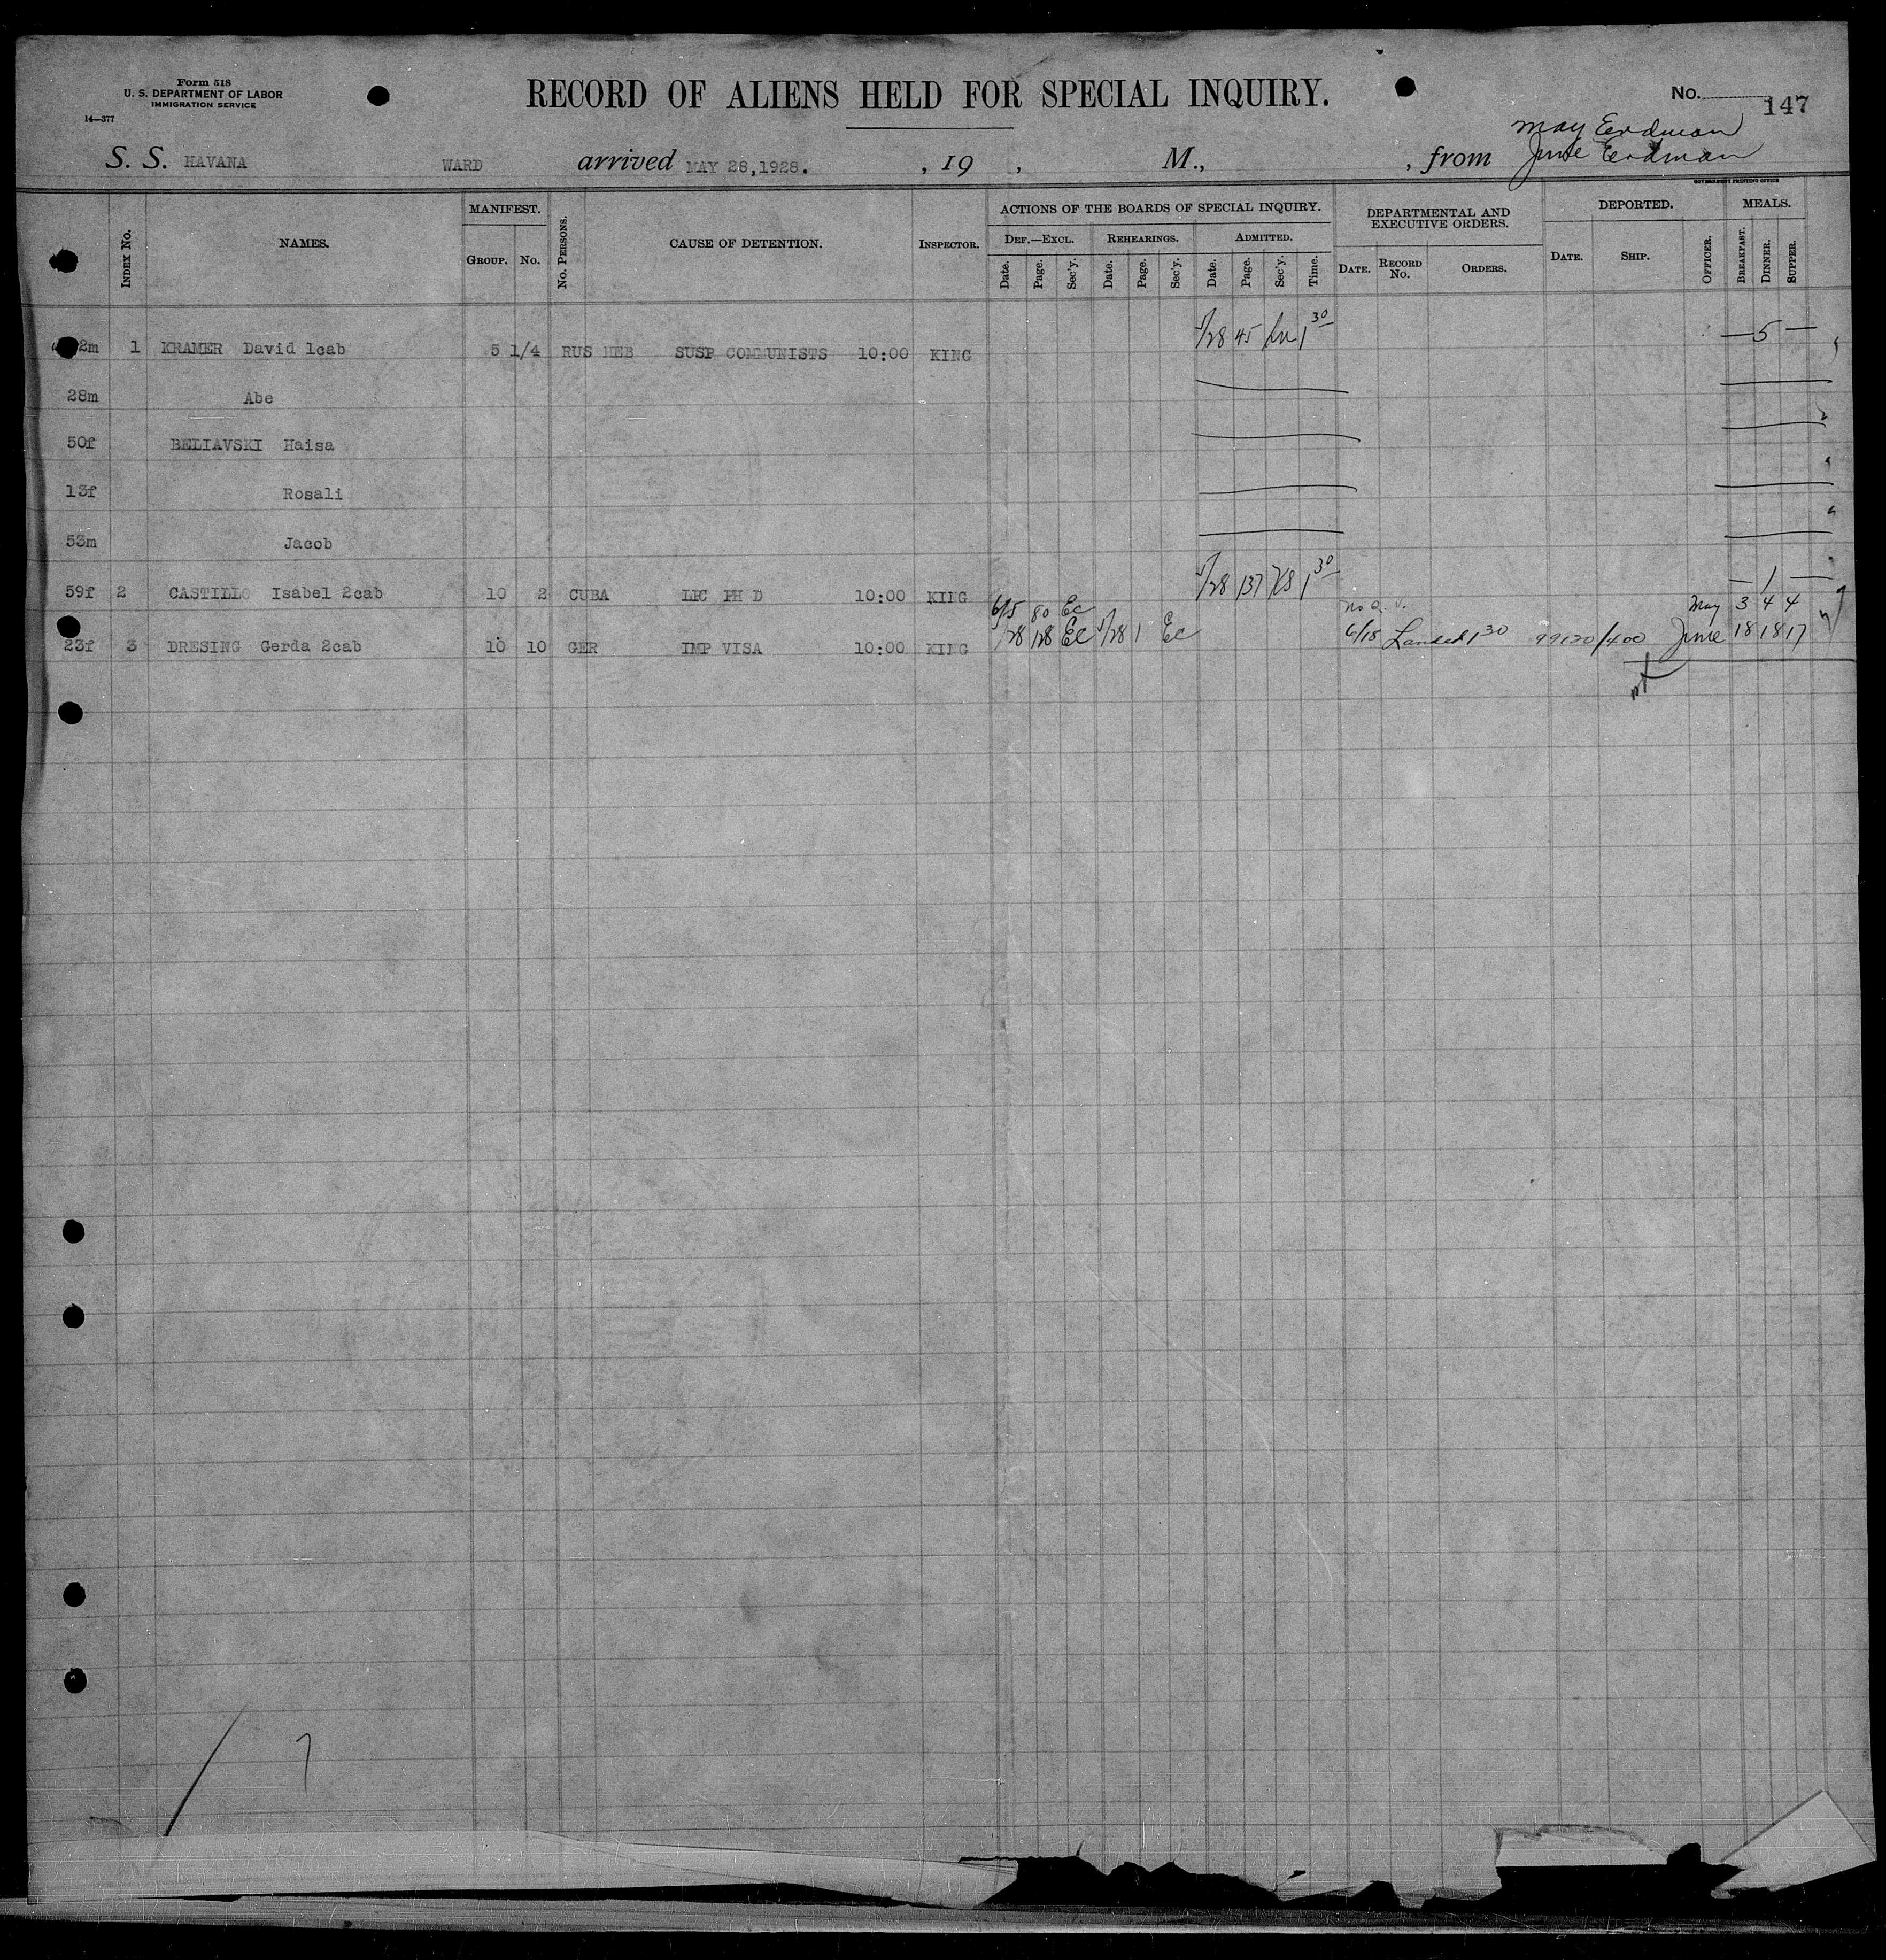 Form 518
U. S. DEPARTMENT OF LABOR
IMMIGRATION SERVICE
14—377
RECORD OF ALIENS HELD FOR SPECIAL INQUIRY.
No. 147
May Erdman
S. S. HAVANA WARD arrived MAY 28,1928. , 19 , M., , from June Erdman
GOVERNMENT PRINTING OFFICE
MANIFEST. ACTIONS OF THE BOARDS OF SPECIAL INQUIRY. DEPARTMENTAL AND EXECUTIVE ORDERS. DEPORTED. MEALS.
Index No. NAMES. Group. No. No. Persons. CAUSE OF DETENTION. Inspector. Def.—Excl. Rehearings. Admitted.
Date. Page. Sec'y. Date. Page. Sec'y. Date. Page. Sec'y. Time. Date. Record No. Orders. Date. Ship. Officer. Breakfast. Dinner. Supper.
2m 1 KRAMER David 1cab 5 1/4 RUS HEB SUSP COMMUNISTS 10:00 KING 5/28 45 1 30 — 5 —
28m Abe
50f BELIAVSKI Haisa
13f Rosali
53m Jacob
59f 2 CASTILLO Isabel 2cab 10 2 CUBA LPC PH D 10:00 KING 5/28 137 1 30 — 1 —
6/5 80 Ec May 3 4 4
23f 3 DRESING Gerda 2cab 10 10 GER IMP VISA 10:00 KING 5/28 128 Ec 5/28 1 Ec 6/18 Landed 1 30 99120/400 June 18 18 17